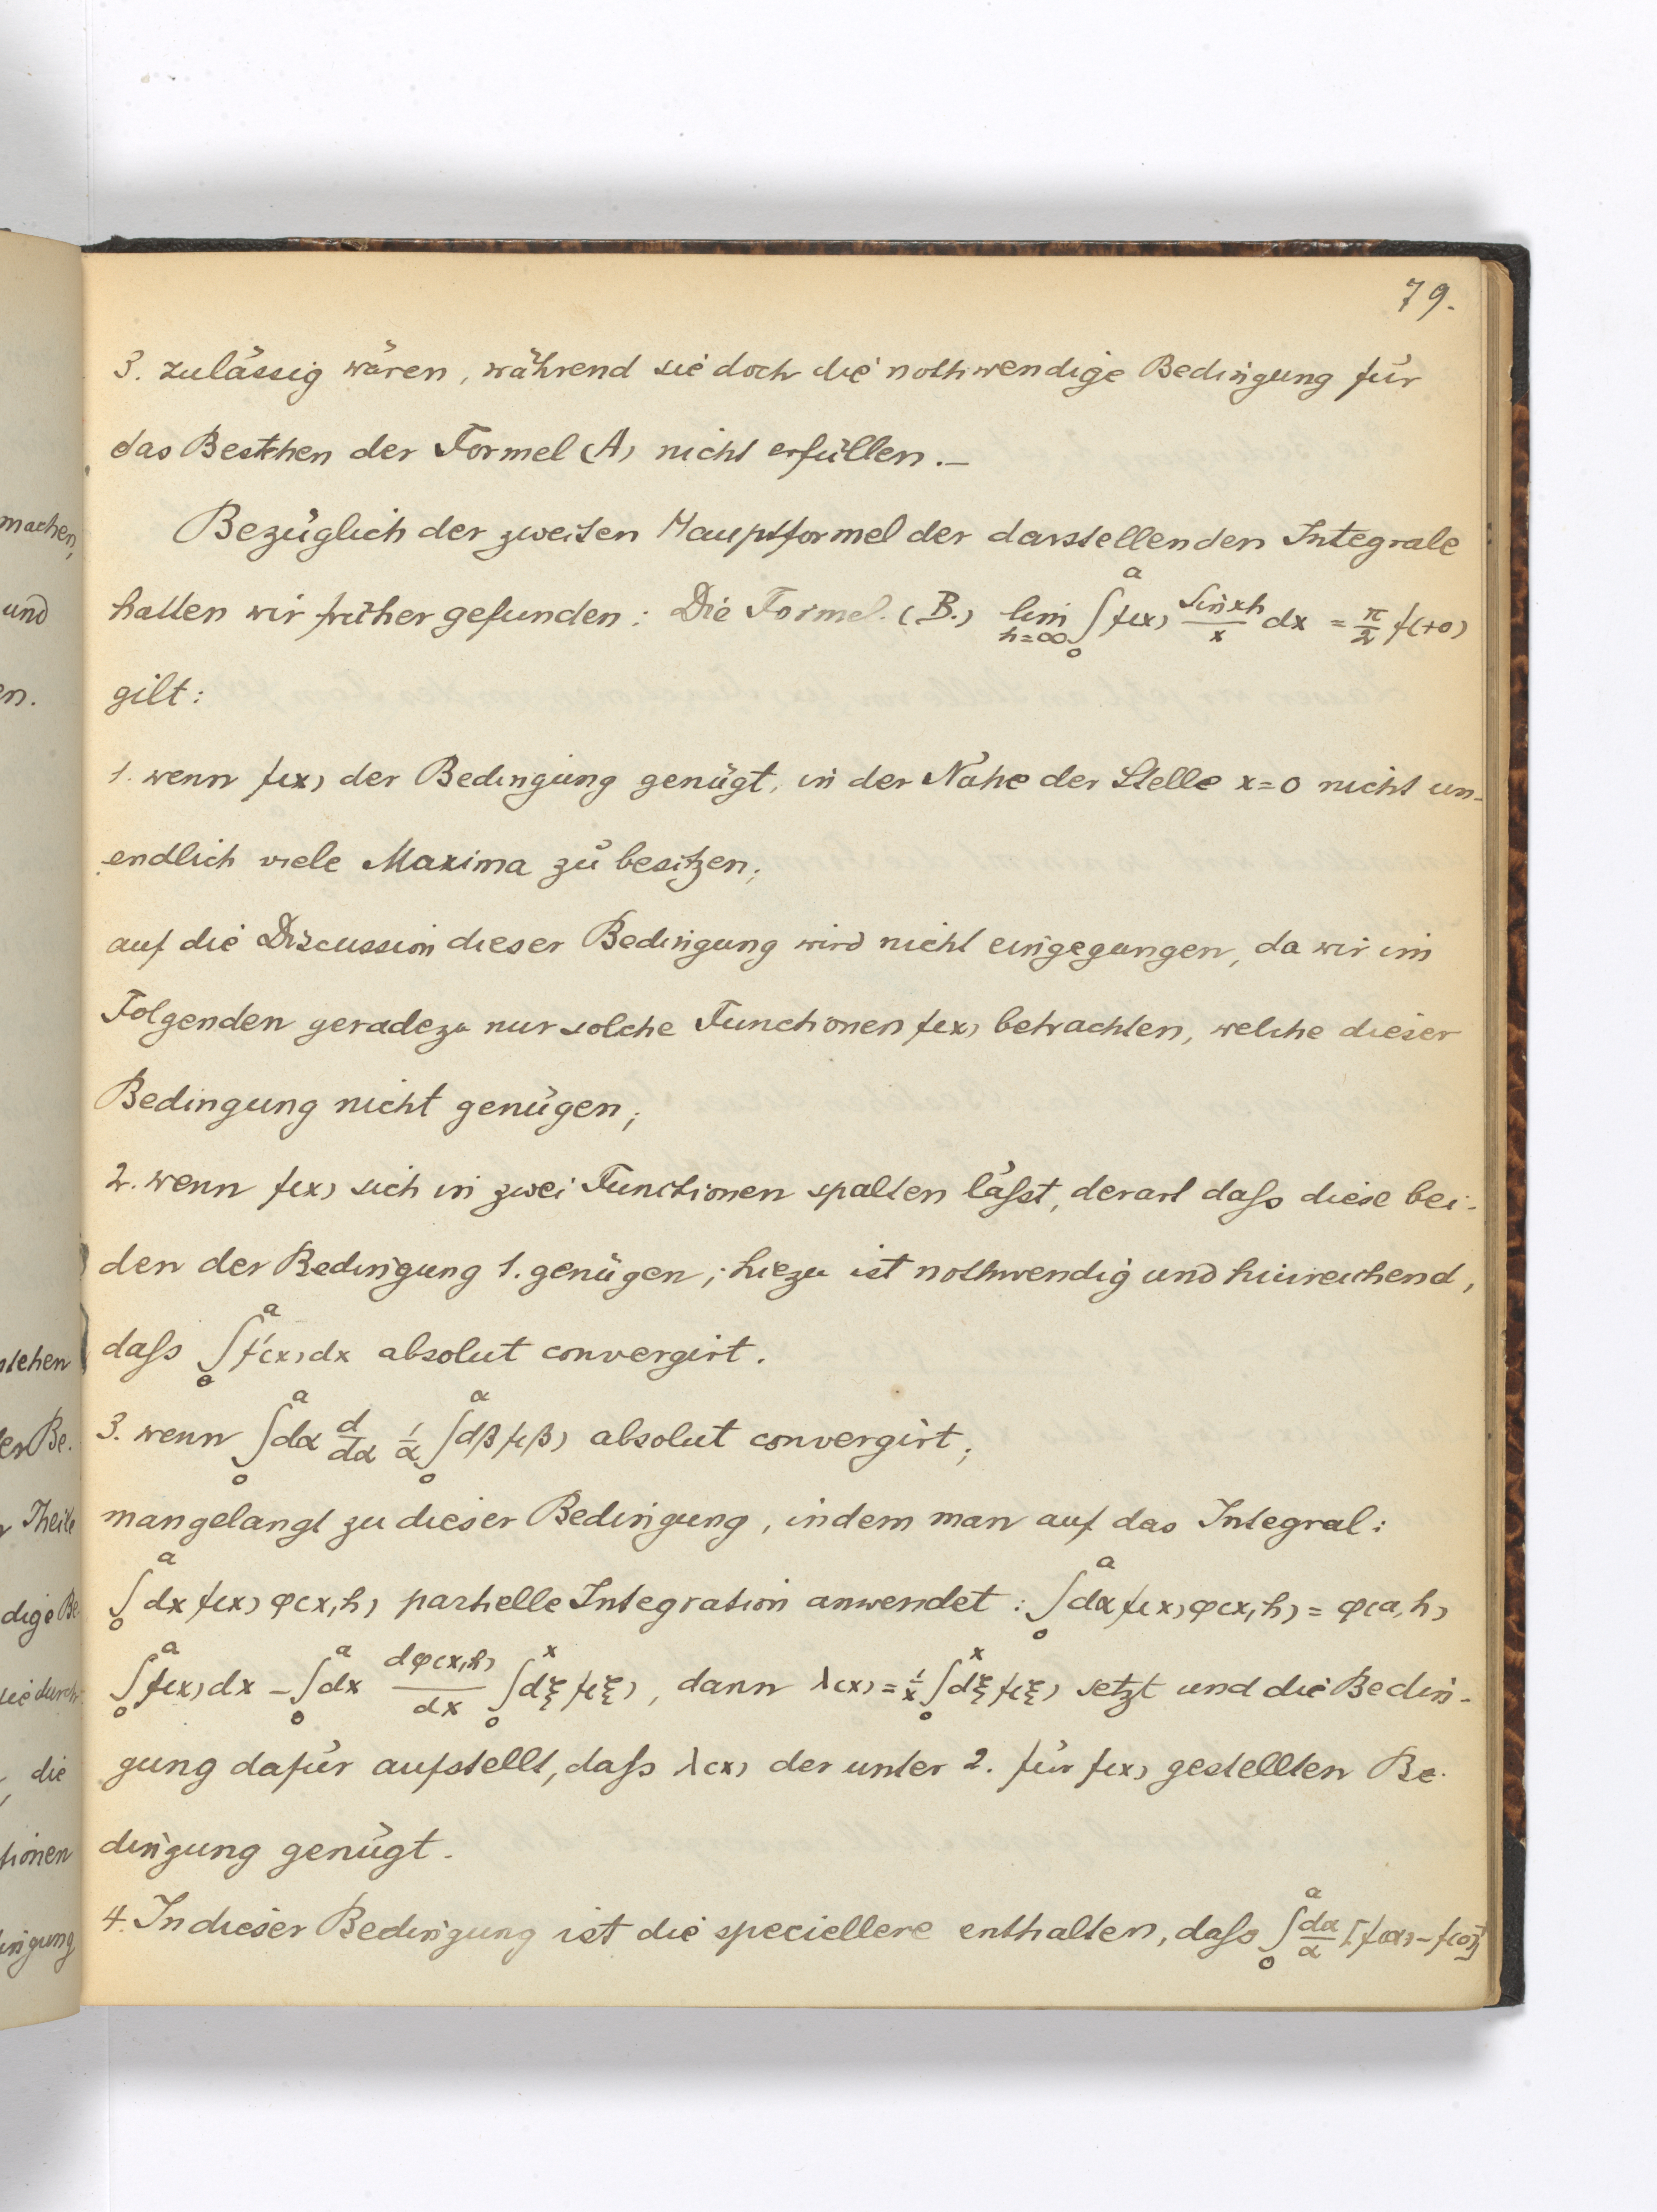 79.
3. zulässig wären, während sie doch die nothwendige Bedingung für
das Bestehen der Formel (A) nicht erfüllen.—
Bezüglich der zweiten Hauptformel der darstellenden Integrale
hatten wir früher gefunden: Die Formel (B.) lim_{h=∞} ∫_0^a f(x) sin xh/x dx = π/2 f(+0)
gilt:
1. wenn f(x) der Bedingung genügt, in der Nähe der Stelle x=0 nicht un-
endlich viele Maxima zu besitzen;
auf die Discussion dieser Bedingung wird nicht eingegangen, da wir im
Folgenden geradezu nur solche Functionen f(x) betrachten, welche dieser
Bedingung nicht genügen;
2. wenn f(x) sich in zwei Functionen spalten läſst, derart daſs diese bei-
den der Bedingung 1. genügen; hiezu ist nothwendig und hinreichend,
daſs ∫_0^a f'(x) dx absolut convergirt.
3. wenn ∫_0^a dα d/dα 1/α ∫_0^α dβ f(β) absolut convergirt;
man gelangt zu dieser Bedingung, indem man auf das Integral:
∫_0^a dx f(x) φ(x,h) partielle Integration anwendet: ∫_0^a dx f(x) φ(x,h) = φ(a,h)
∫_0^a f(x) dx - ∫_0^a dx dφ(x,h)/dx ∫_0^x dξ f(ξ), dann λ(x) = 1/x ∫_0^x dξ f(ξ) setzt und die Bedin-
gung dafür aufstellt, daſs λ(x) der unter 2. für f(x) gestellten Be-
dingung genügt.
4. In dieser Bedingung ist die speciellere enthalten, daſs ∫_0^a dα/α [f(α)-f(0)]
machen,
und
en.
stehen
er Be.
Theile
dige Be
sie durch
, die
tionen
ingung